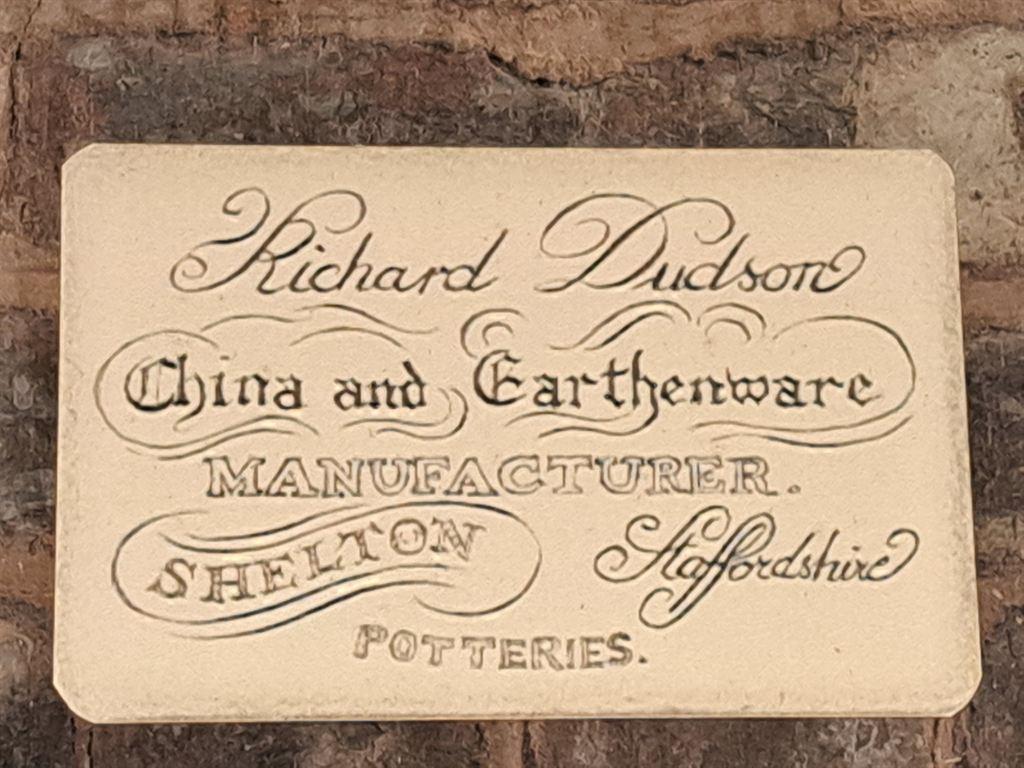 Richard Dudson
China and Earthenware
MANUFACTURER.
SHELTON Staffordshire
POTTERIES.